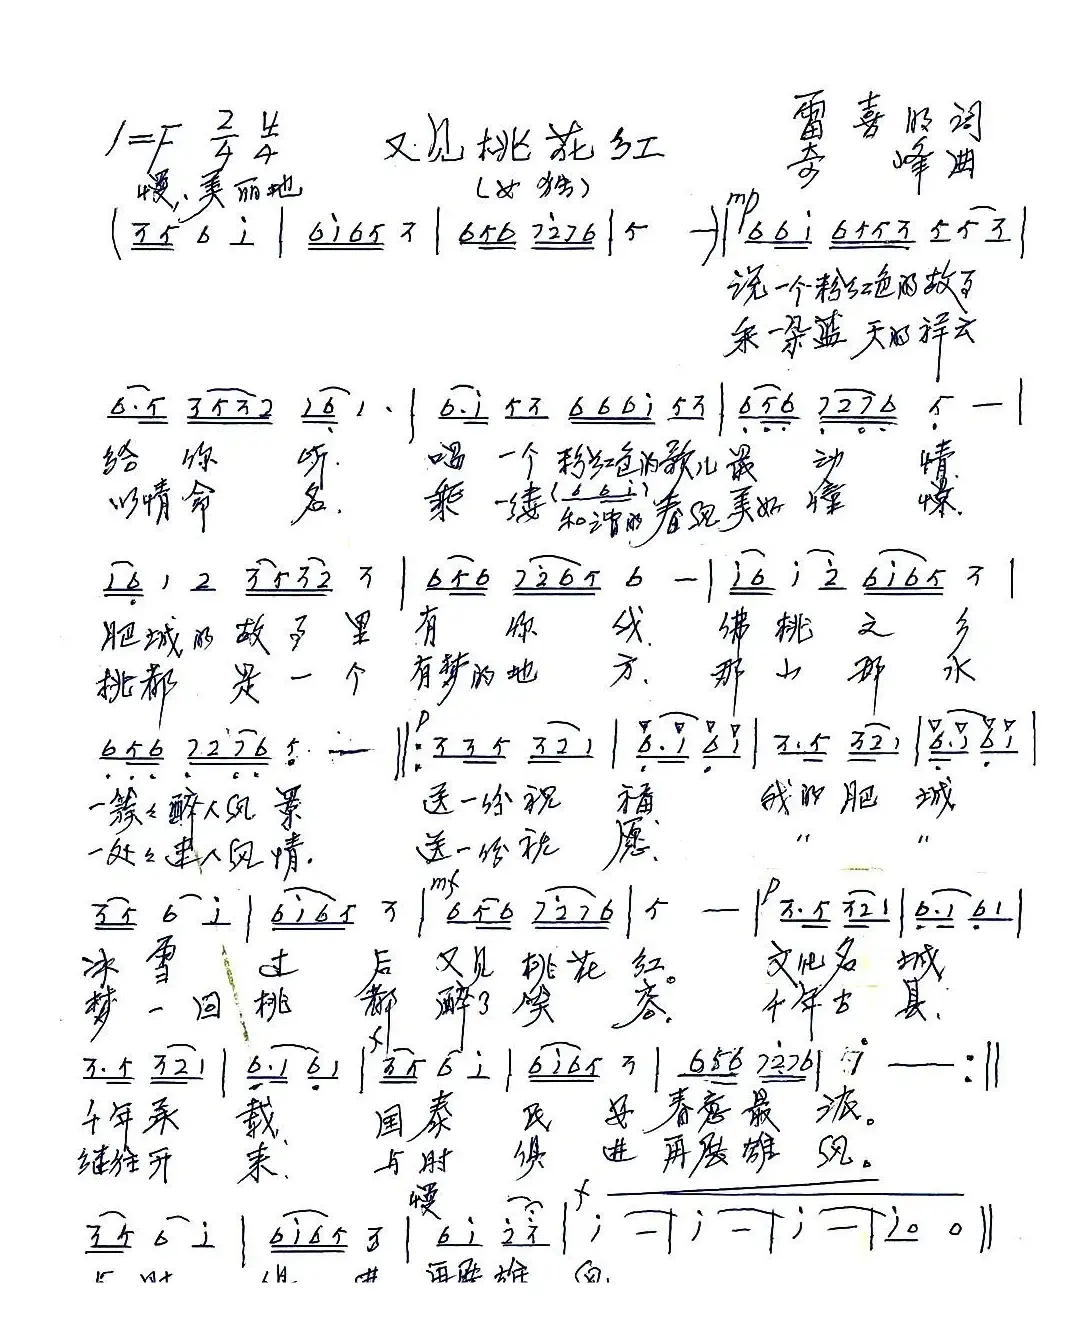 1=F 2/4 4/4 又见桃花红 雷喜明词
慢、美丽地 (女独) 奇峰曲
(35 6 i | 6i65 3 | 656 7276 | 5 —) | mp 66i 6553 553 |
说一个粉红色的故事
采一朵蓝天的祥云
6.5 3532 161. | 6.i 53 666i 53 | 656 7276 5 — |
给你听. 唱一个粉红色的歌儿最动情.
以情命名. 乘一缕(66i)和谐的春风美好憧憬.
161 2 3532 3 | 656 7265 6 — | i6 i 2 6i65 3 |
肥城的故事里有你我. 佛桃之乡
桃都是一个有梦的地方. 那山那水
656 7276 5 — ‖: p 335 321 | 6.1 61 | 3.5 321 | 6.1 61 |
一等々醉人风景 送一份祝福 我的肥城
一处々建人风情. 送一份祝愿. 〃 〃
35 6 i | 6i65 3 | mf 656 7276 | 5 — | p 3.5 321 | 6.1 61 |
冰雪过后又见桃花红。 文化名城
梦一回桃都醉了笑容. 千年古县.
3.5 321 | 6.1 61 | f 35 6 i | 6i65 3 | 656 7276 | 5 — :‖
千年承载. 国泰民安春意最浓。
继往开来. 与时俱进再展雄风。
慢 f
35 6 i | 6i65 3 | 6i 23 | i — | i — | i — | i0 0 ‖
与时俱进再展雄风.